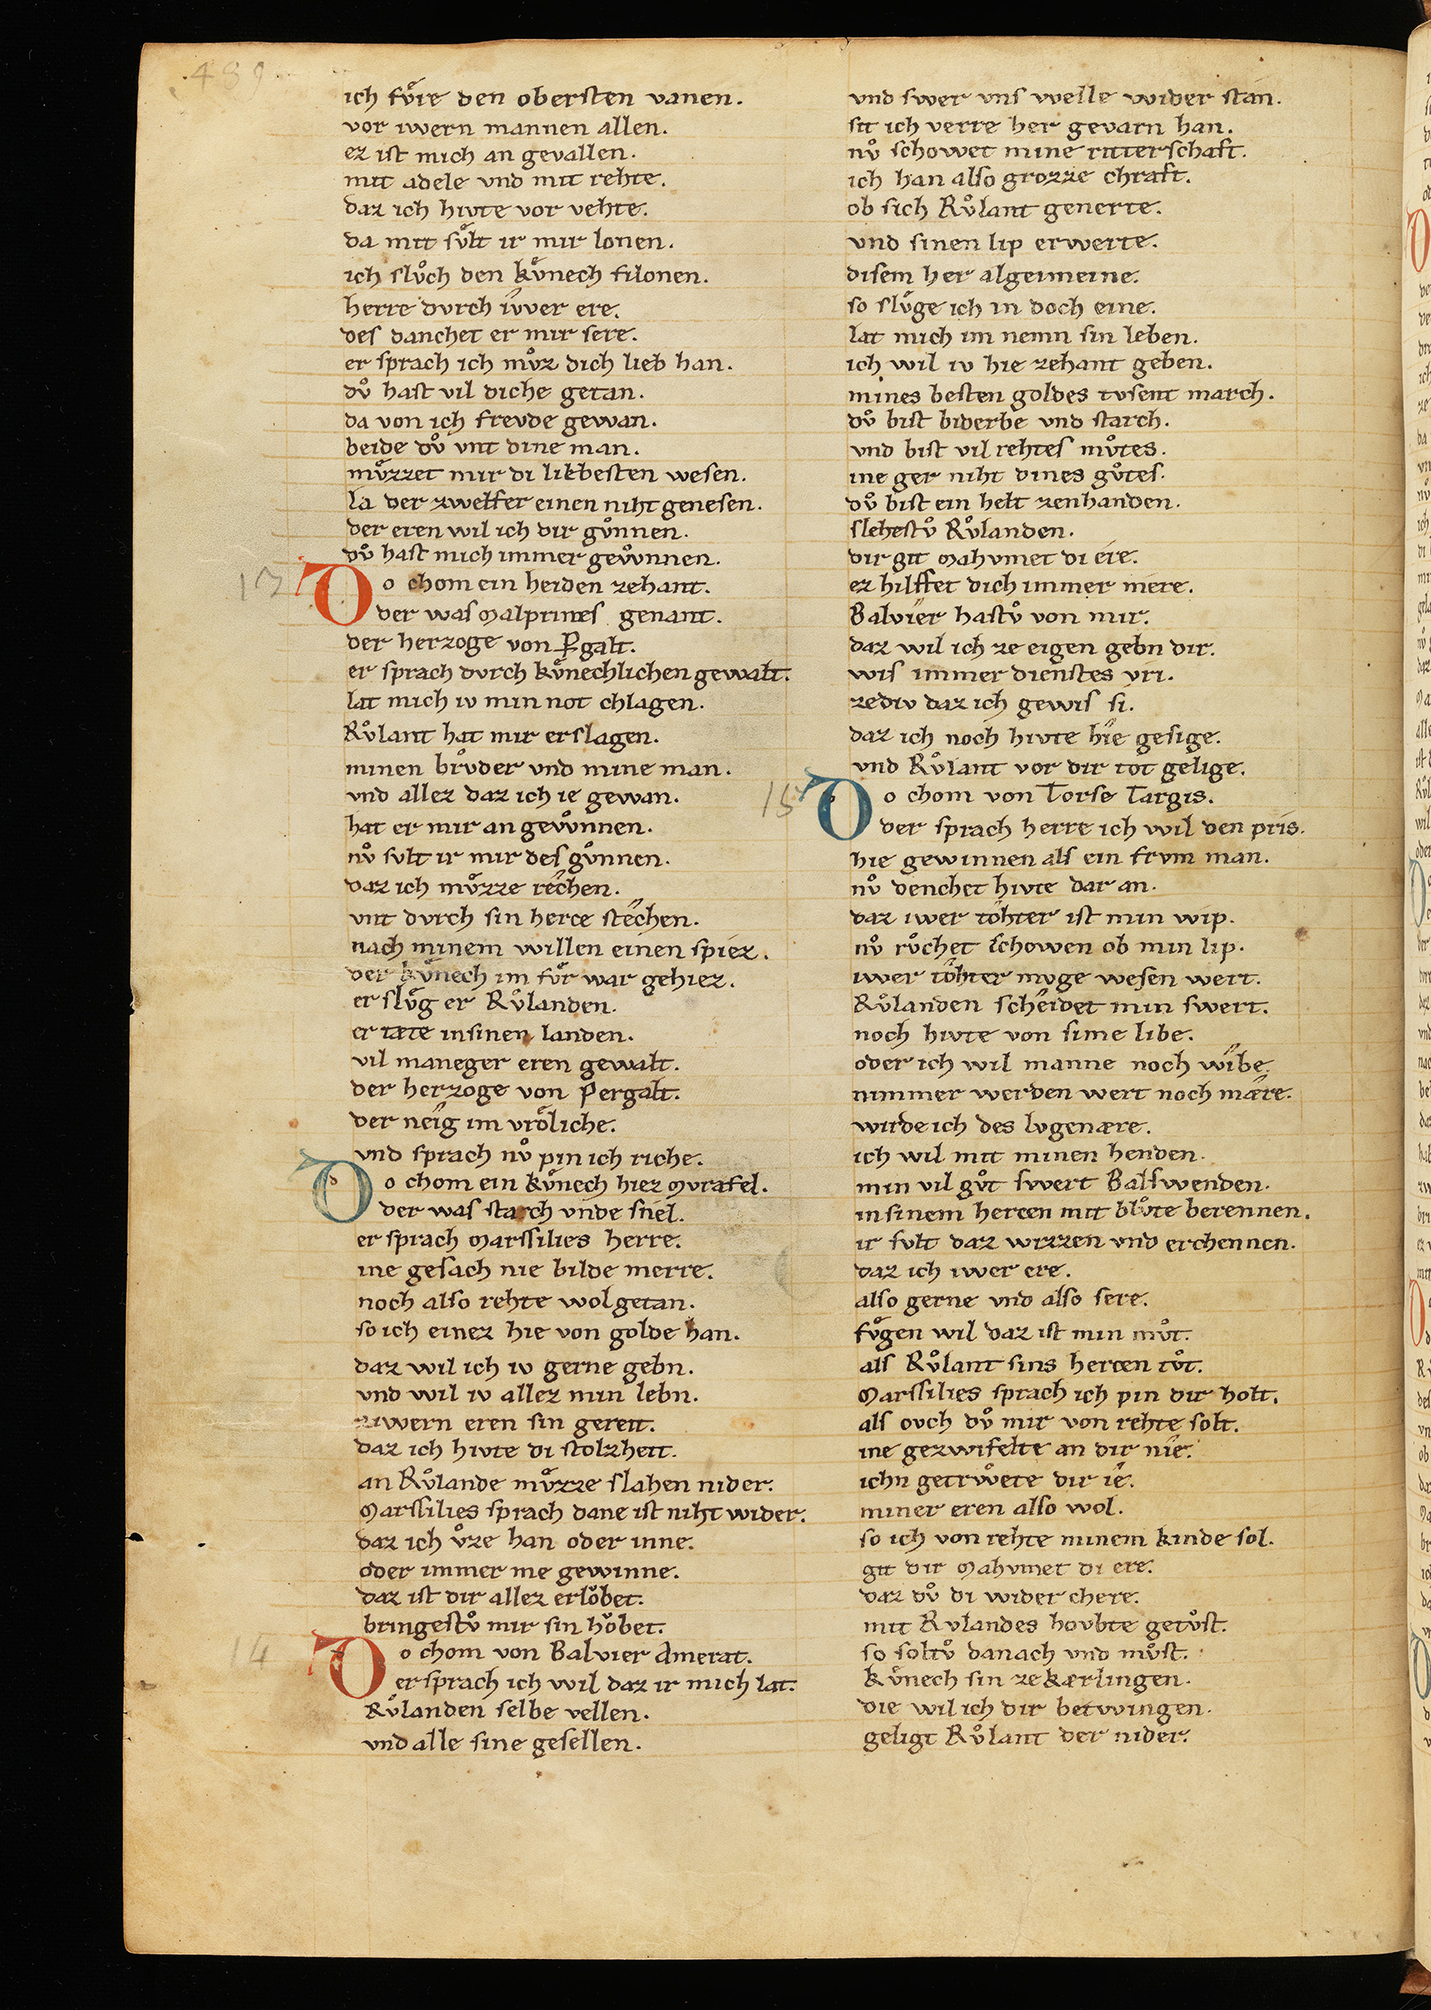 489
ich fvͦie den obersten vanen.
vor iwern mannen allen.
ez ist mich an gevallen.
mit adele vnd mit rehte.
daz ich hivte vor vehte.
da mit svͦlt ir mir lonen.
ich slvͦch den kvͤnech filonen.
herre dvrch iwer ere.
des danchet er mir sere.
er sprach ich mvͦz dich lieb han.
dvͦ hast vil diche getan.
da von ich frevde gewan.
beide dvͦ vnt dine man.
mvͤzzet mir di liebesten wesen.
la der zwelfer einen niht genesen.
der eren wil ich dir gvͦnnen.
dvͦ hast mich immer gewͦnnen.
13 Do chom ein heiden zehant.
der was Malprimes genant.
der herzoge von P̲galt.
er sprach dvrch kvͤnechlichen gewalt.
lat mich iv min not chlagen.
Rvͦlant hat mir erslagen.
minen brvͦder vnd mine man.
vnd allez daz ich ie gewan.
hat er mir an gewͦnnen.
nvͦ svlt ir mir des gvͦnnen.
daz ich mvͤzze rêchen.
vnt dvrch sin herce stêchen.
nach minem willen einen spiez.
der kvͤnech im fvͤr war gehiez.
er slvͤg er Rvͦlanden.
er tæte in sinen landen.
vil maneger eren gewalt.
der herzoge von Pergalt.
der neîg im vrôliche.
vnd sprach nvͦ pin ich riche.
Do chom ein kvͤnech hiez Mvrafel.
der was starch vnde snel.
er sprach Marssilies herre.
ine gesach nie bilde merre.
noch also rehte wolgetan.
so ich einez hie von golde han.
daz wil ich iv gerne gebn.
vnd wil iv allez min lebn.
ziwern eren sin gereit.
daz ich hivte di stolzheit.
an Rvͦlande mvͤzze slahen nider.
Marssilies sprach dane ist niht wider.
daz ich vͦze han oder inne.
oder immer me gewinne.
daz ist dir allez erlôbet.
bringestvͦ mir sin hôbet.
14 Do chom von Balvier Amerat.
er sprach ich wil daz ir mich lat.
Rvͦlanden selbe vellen.
vnd alle sine gesellen.
vnd swer vns welle wider stan.
sit ich verre her gevarn han.
nvͦ schowet mine ritterschaft.
ich han also grozze chraft.
ob sich Rvͦlant generte.
vnd sinen lip erwerte.
disem her algeimeine.
so slvͤge ich in doch eine.
lat mich im nemn sin leben.
ich wil iv hie zehant geben.
mines besten goldes tvsent march.
dvͦ bist biderbe vnd starch.
vnd bist vil rehtes mvͦtes.
ine ger niht dines gvͦtes.
dvͦ bist ein helt zenhanden.
slehestvͦ Rvͦlanden.
dir git Mahvmet di êre.
ez hilffet dich immer mêre.
Balvîer hastvͦ von mir.
daz wil ich ze eigen gebn dir.
wis immer dienstes vri.
zediv daz ich gewis si.
daz ich noch hivte hîe gesige.
vnd Rvͦlant vor dir tot gelige.
15 Do chom von Torse Targis.
der sprach herre ich wil den pris.
hie gewinnen als ein frvm man.
nvͦ denchet hivte dar an.
daz iwer tôhter ist min wip.
nvͦ rvͦchet schowen ob min lip.
iwer tôhter mvge wesen wert.
Rvͦlanden scheîdet min swert.
noch hivte von sime libe.
oder ich wil manne noch wîbe.
nimmer werden wert noch mære.
wirde ich des lvgenære.
ich wil mit minen henden.
min vil gvͦt swert Balswenden.
in sinem hercen mit blvͦte berennen.
ir svlt daz wizzen vnd erchennen.
daz ich iwer ere.
also gerne vnd also sere.
fvͤgen wil daz ist min mvͦt.
als Rvͦlant sins hercen tvͦt.
Marssilies sprach ich pin dir holt.
als ovch dvͦ mir von rehte solt.
ine gezwifelte an dir nîe.
ichn getrwͦete dir îe.
miner eren also wol.
so ich von rehte minem kinde sol.
git dir Mahvmet di ere.
daz dvͦ di wider chere.
mit Rvlandes hovbte getvͦst.
so soltvͦ danach vnd mvͦst.
kvͤnech sin ze kærlingen.
die wil ich dir betwingen.
geligt Rvͦlant der nider.